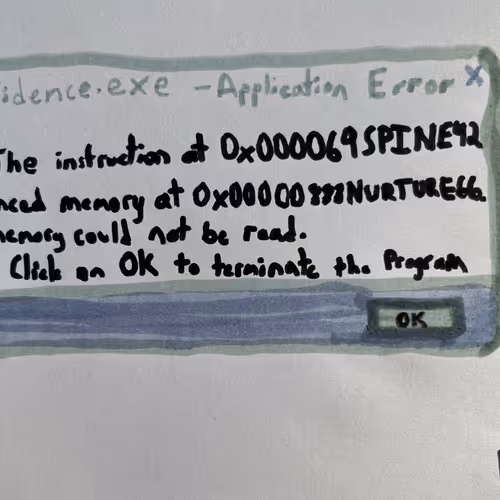 idence.exe - Application Error x
The instruction at 0x000069SPINE42
nced memory at 0x00000888NURTURE66.
memory could not be read.
Click on OK to terminate the Program
OK